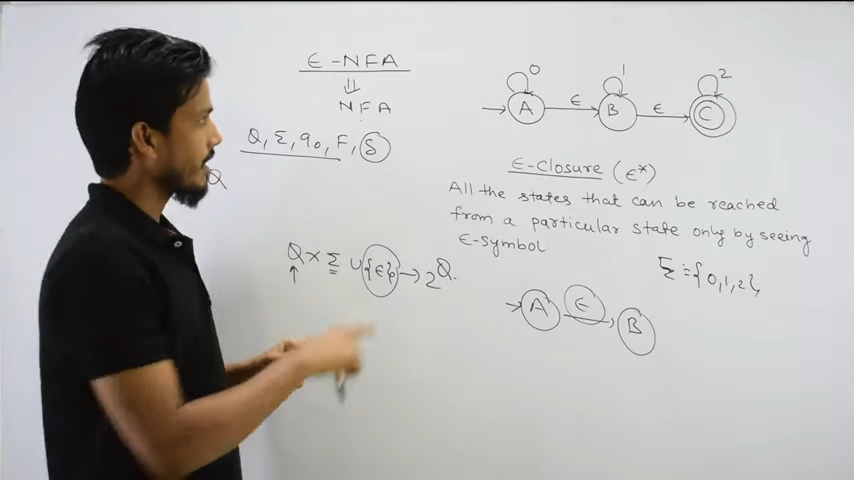 ϵ-NFA
⇓
NFA
Q, Σ, q0, F, δ
Q
Q × Σ ∪ {ϵ} → 2^Q.
↑
0 1 2
→ A ϵ→ B ϵ→ C
ϵ-closure (ϵ*)
All the states that can be reached
from a particular state only by seeing
ϵ-symbol.
Σ = {0,1,2},
→ A ϵ→ B